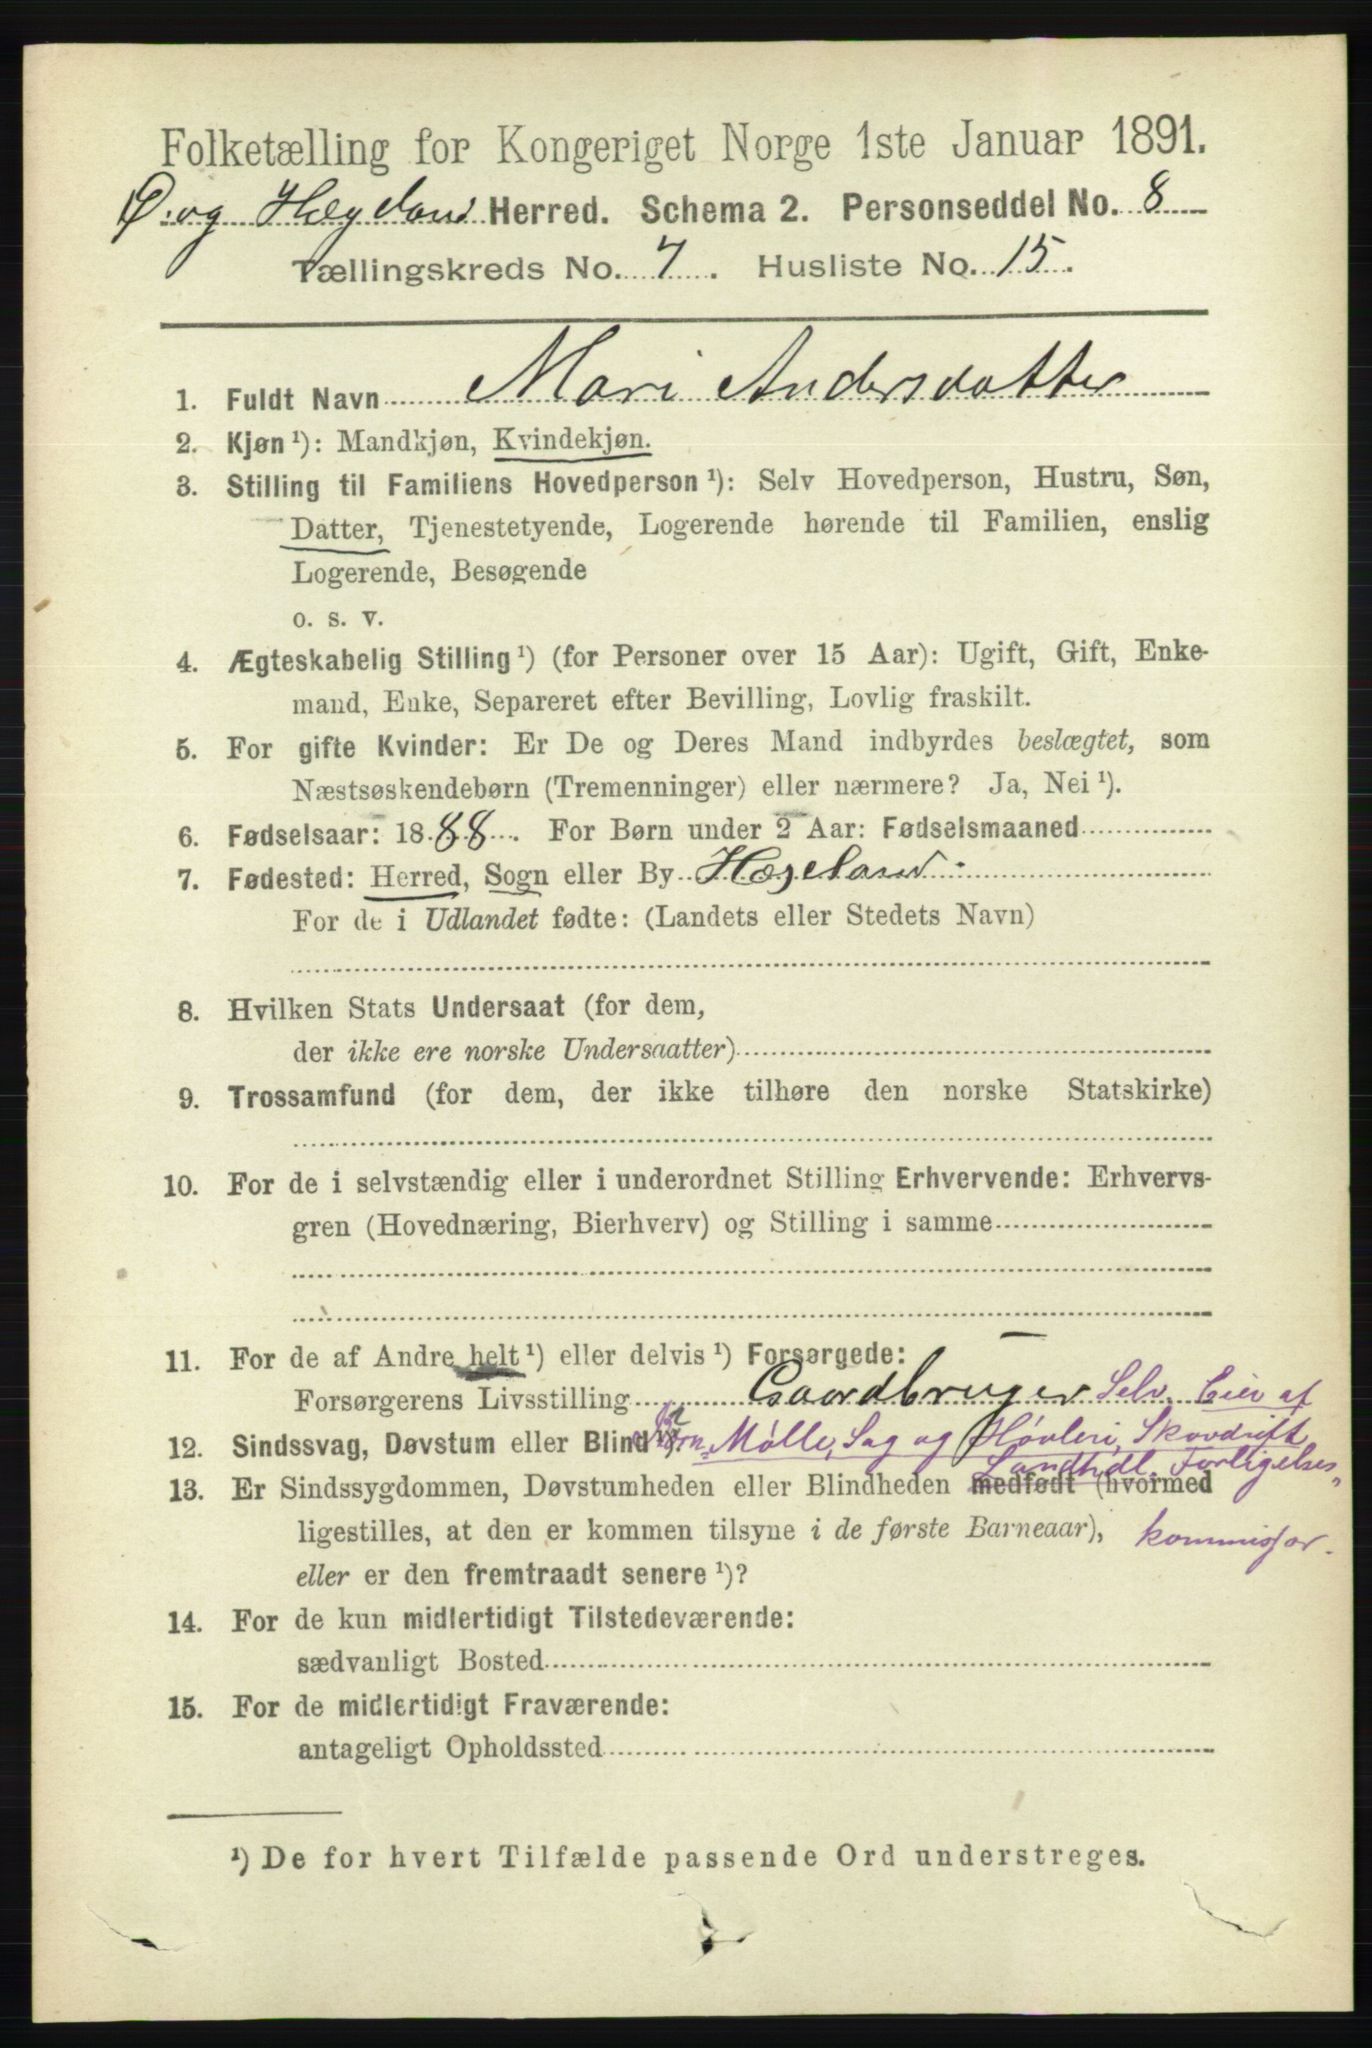 Folketælling for Kongeriget Norge 1ste Januar 1891.
Ø. og Hægeland Herred. Schema 2. Personseddel No. 8
Tællingskreds No. 7. Husliste No. 15.
1. Fuldt Navn Mari Andersdatter
2. Kjøn ¹): Mandkjøn, Kvindekjøn.
3. Stilling til Familiens Hovedperson ¹): Selv Hovedperson, Hustru, Søn,
Datter, Tjenestetyende, Logerende hørende til Familien, enslig
Logerende, Besøgende
o. s. v.
4. Ægteskabelig Stilling ¹) (for Personer over 15 Aar): Ugift, Gift, Enke-
mand, Enke, Separeret efter Bevilling, Lovlig fraskilt.
5. For gifte Kvinder: Er De og Deres Mand indbyrdes beslægtet, som
Næstsøskendebørn (Tremenninger) eller nærmere? Ja, Nei ¹).
6. Fødselsaar: 1888. For Børn under 2 Aar: Fødselsmaaned
7. Fødested: Herred, Sogn eller By Hægeland
For de i Udlandet fødte: (Landets eller Stedets Navn)
8. Hvilken Stats Undersaat (for dem,
der ikke ere norske Undersaatter)
9. Trossamfund (for dem, der ikke tilhøre den norske Statskirke)
10. For de i selvstændig eller i underordnet Stilling Erhvervende: Erhvervs-
gren (Hovednæring, Bierhverv) og Stilling i samme
11. For de af Andre helt ¹) eller delvis ¹) Forsørgede:
Forsørgerens Livsstilling Gaardbruger Selv. Eier af
12. Sindssvag, Døvstum eller Blind Mølle, Sag og Høvleri, Skovdrift
Landhdl. Forligelses
13. Er Sindssygdommen, Døvstumheden eller Blindheden medfødt (hvormed
ligestilles, at den er kommen tilsyne i de første Barneaar), kommissær.
eller er den fremtraadt senere ¹)?
14. For de kun midlertidigt Tilstedeværende:
sædvanligt Bosted
15. For de midlertidigt Fraværende:
antageligt Opholdssted
¹) De for hvert Tilfælde passende Ord understreges.